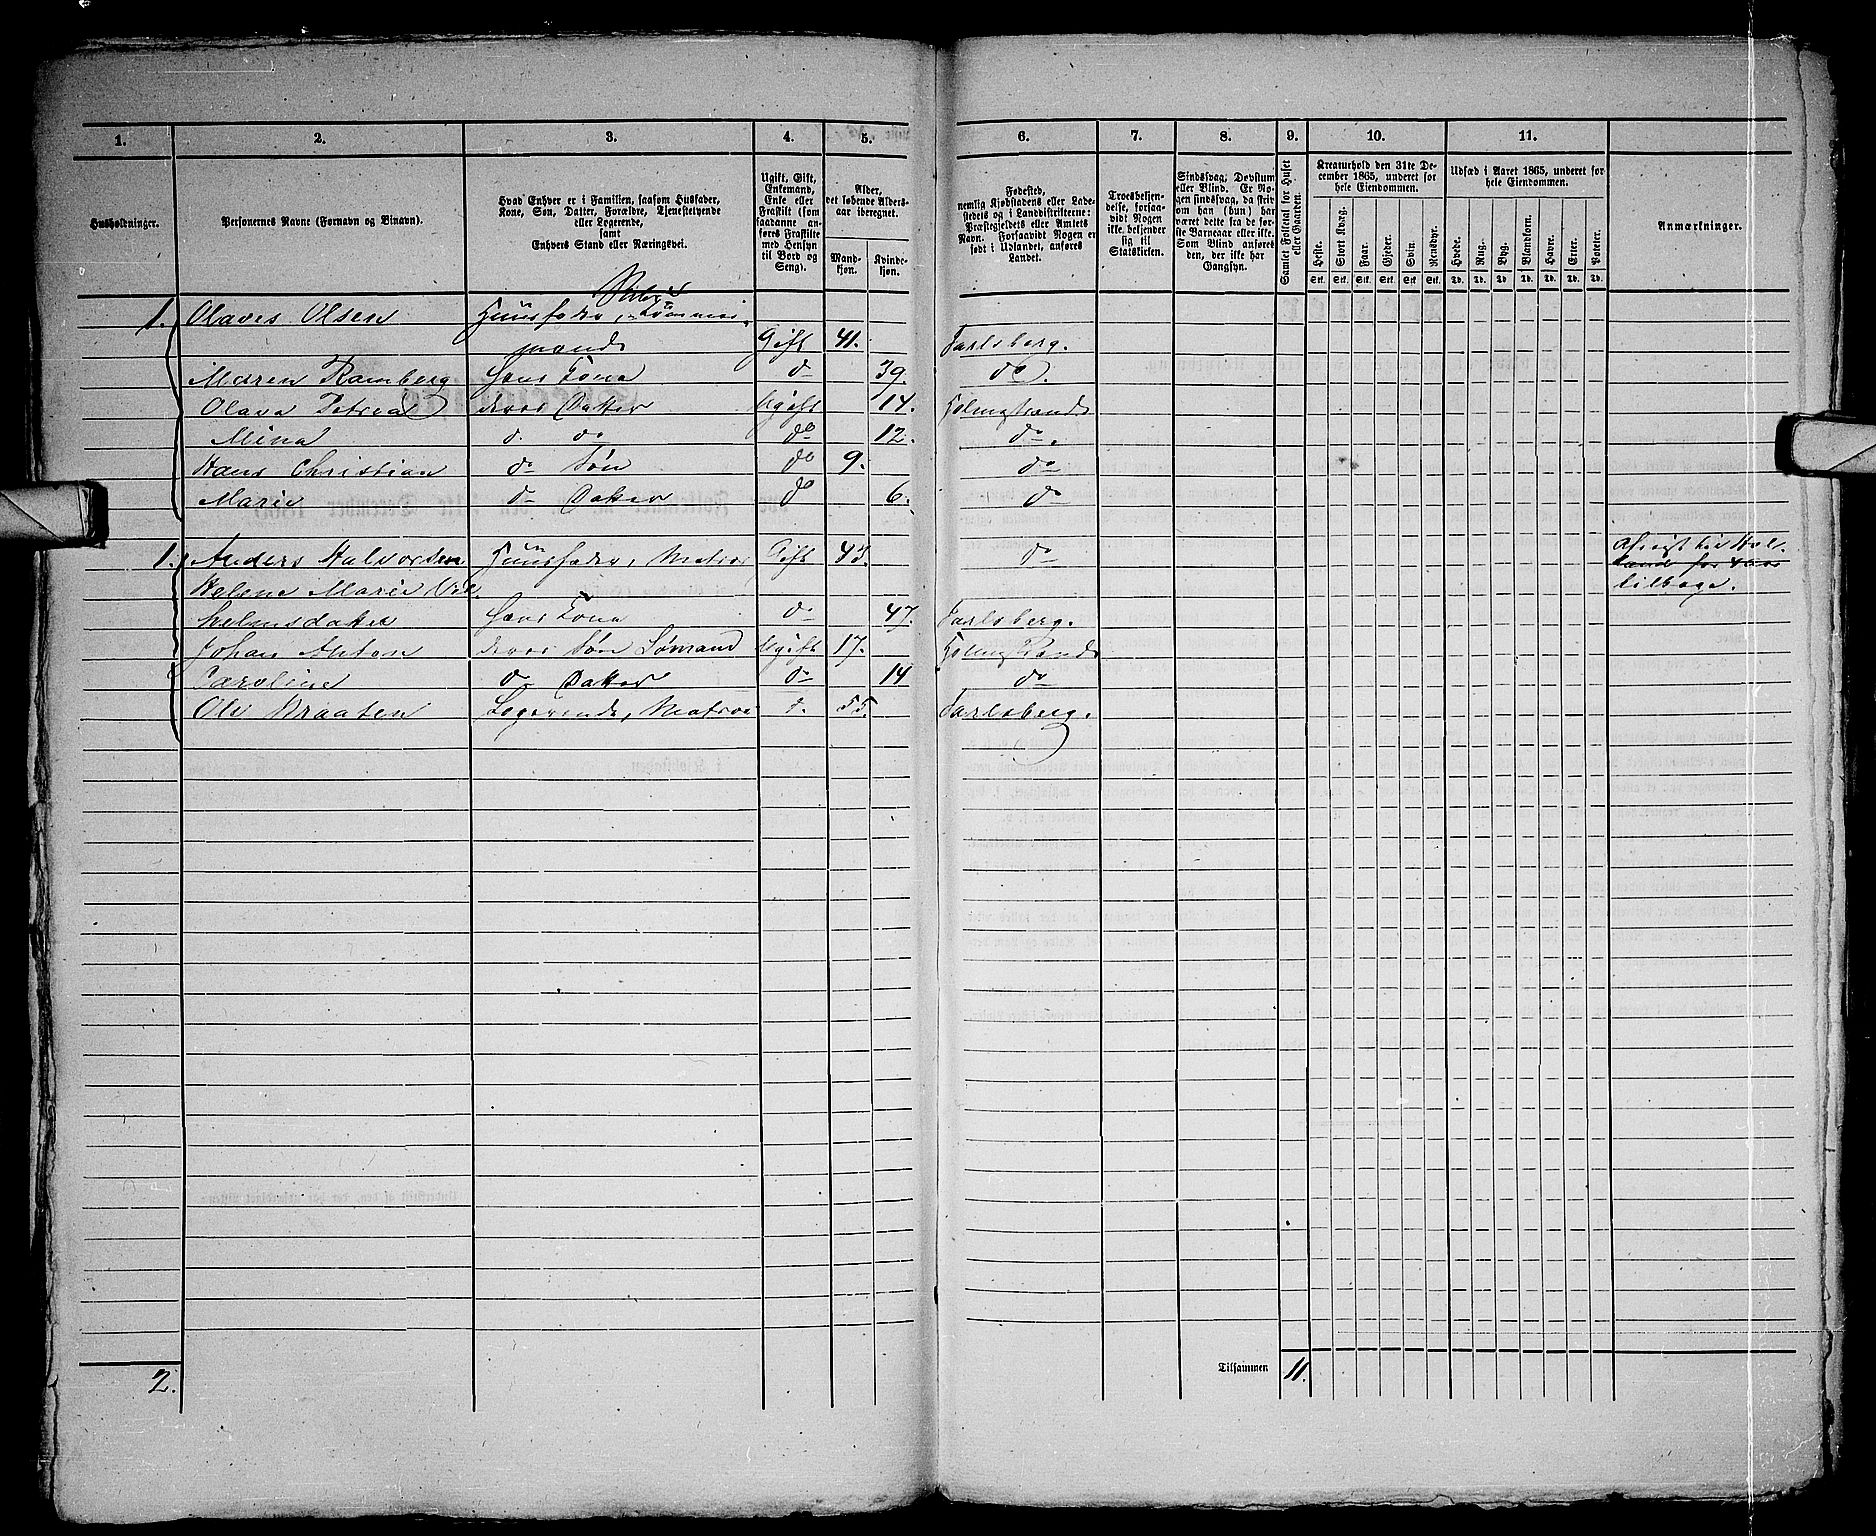 1. 2. 3. 4. 5. 6. 7. 8. 9. 10. 11.
Husholdninger.
Personernes Navne (Fornavn og Binavn).
Hvad Enhver er i Familien, saasom Husfader,
Kone, Søn, Datter, Forældre, Tjenestetyende
eller Logerende,
samt
Enhvers Stand eller Næringsvei.
Ugift, Gift,
Enkemand,
Enke eller
Fraskilt (som
saadanne an-
føres Fraskilte
med Hensyn
til Bord og
Seng).
Alder,
det løbende Alders-
aar iberegnet.
Mand-
kjøn.
Kvinde-
kjøn.
Fødested,
nemlig Kjøbstadens eller Lade-
stedets og i Landdistrikterne:
Præstegjeldets eller Amtets
Navn. Forsaavidt Nogen er
født i Udlandet, anføres
Landet.
Troesbekjen-
delse, forsaa-
vidt Nogen
ikke bekjender
sig til
Statskirken.
Sindssvag, Døvstum
eller Blind. Er No-
gen sindssvag, da skriv
om han (hun) har
været dette fra de før-
ste Barneaar eller ikke.
Som Blind anføres
den, der ikke har
Gangsyn.
Samlet Folketal for Huset
eller Gaarden.
Kreaturhold den 31te De-
cember 1865, underet for
hele Eiendommen.
Heste. Stort Kvæg. Faar. Gjeder. Svin. Rensdyr.
Stk. Stk. Stk. Stk. Stk. Stk.
Udsæd i Aaret 1865, underet for
hele Eiendommen.
Hvede. Rug. Byg. Blandkorn. Havre. Erter. Poteter.
Td. Td. Td. Td. Td. Td. Td.
Anmærkninger.
1. Olaves Olsen Huusfader, Tømmer-
mand Gift 41. Jarlsberg.
Maren Ramberg Hans Kone do 39. do.
Olava Petrea deres Datter Ugift 14. Holmestrand
Mina do do do 12. do.
Hans Christian do Søn do 9. do
Marie do Datter do 6. do
1. Anders Halvorsen Huusfader, Matros Gift 43. do
Helene Marie Vil-
helmsdatter Hans Kone do 47. Jarlsberg.
Johan Anton deres Søn Sømand Ugift 17. Holmestrand
Caroline do Datter do 14 do
Ole Braaten Logerende, Matros do 55. Jarlsberg.
tilbage.
2. Tilsammen 11.